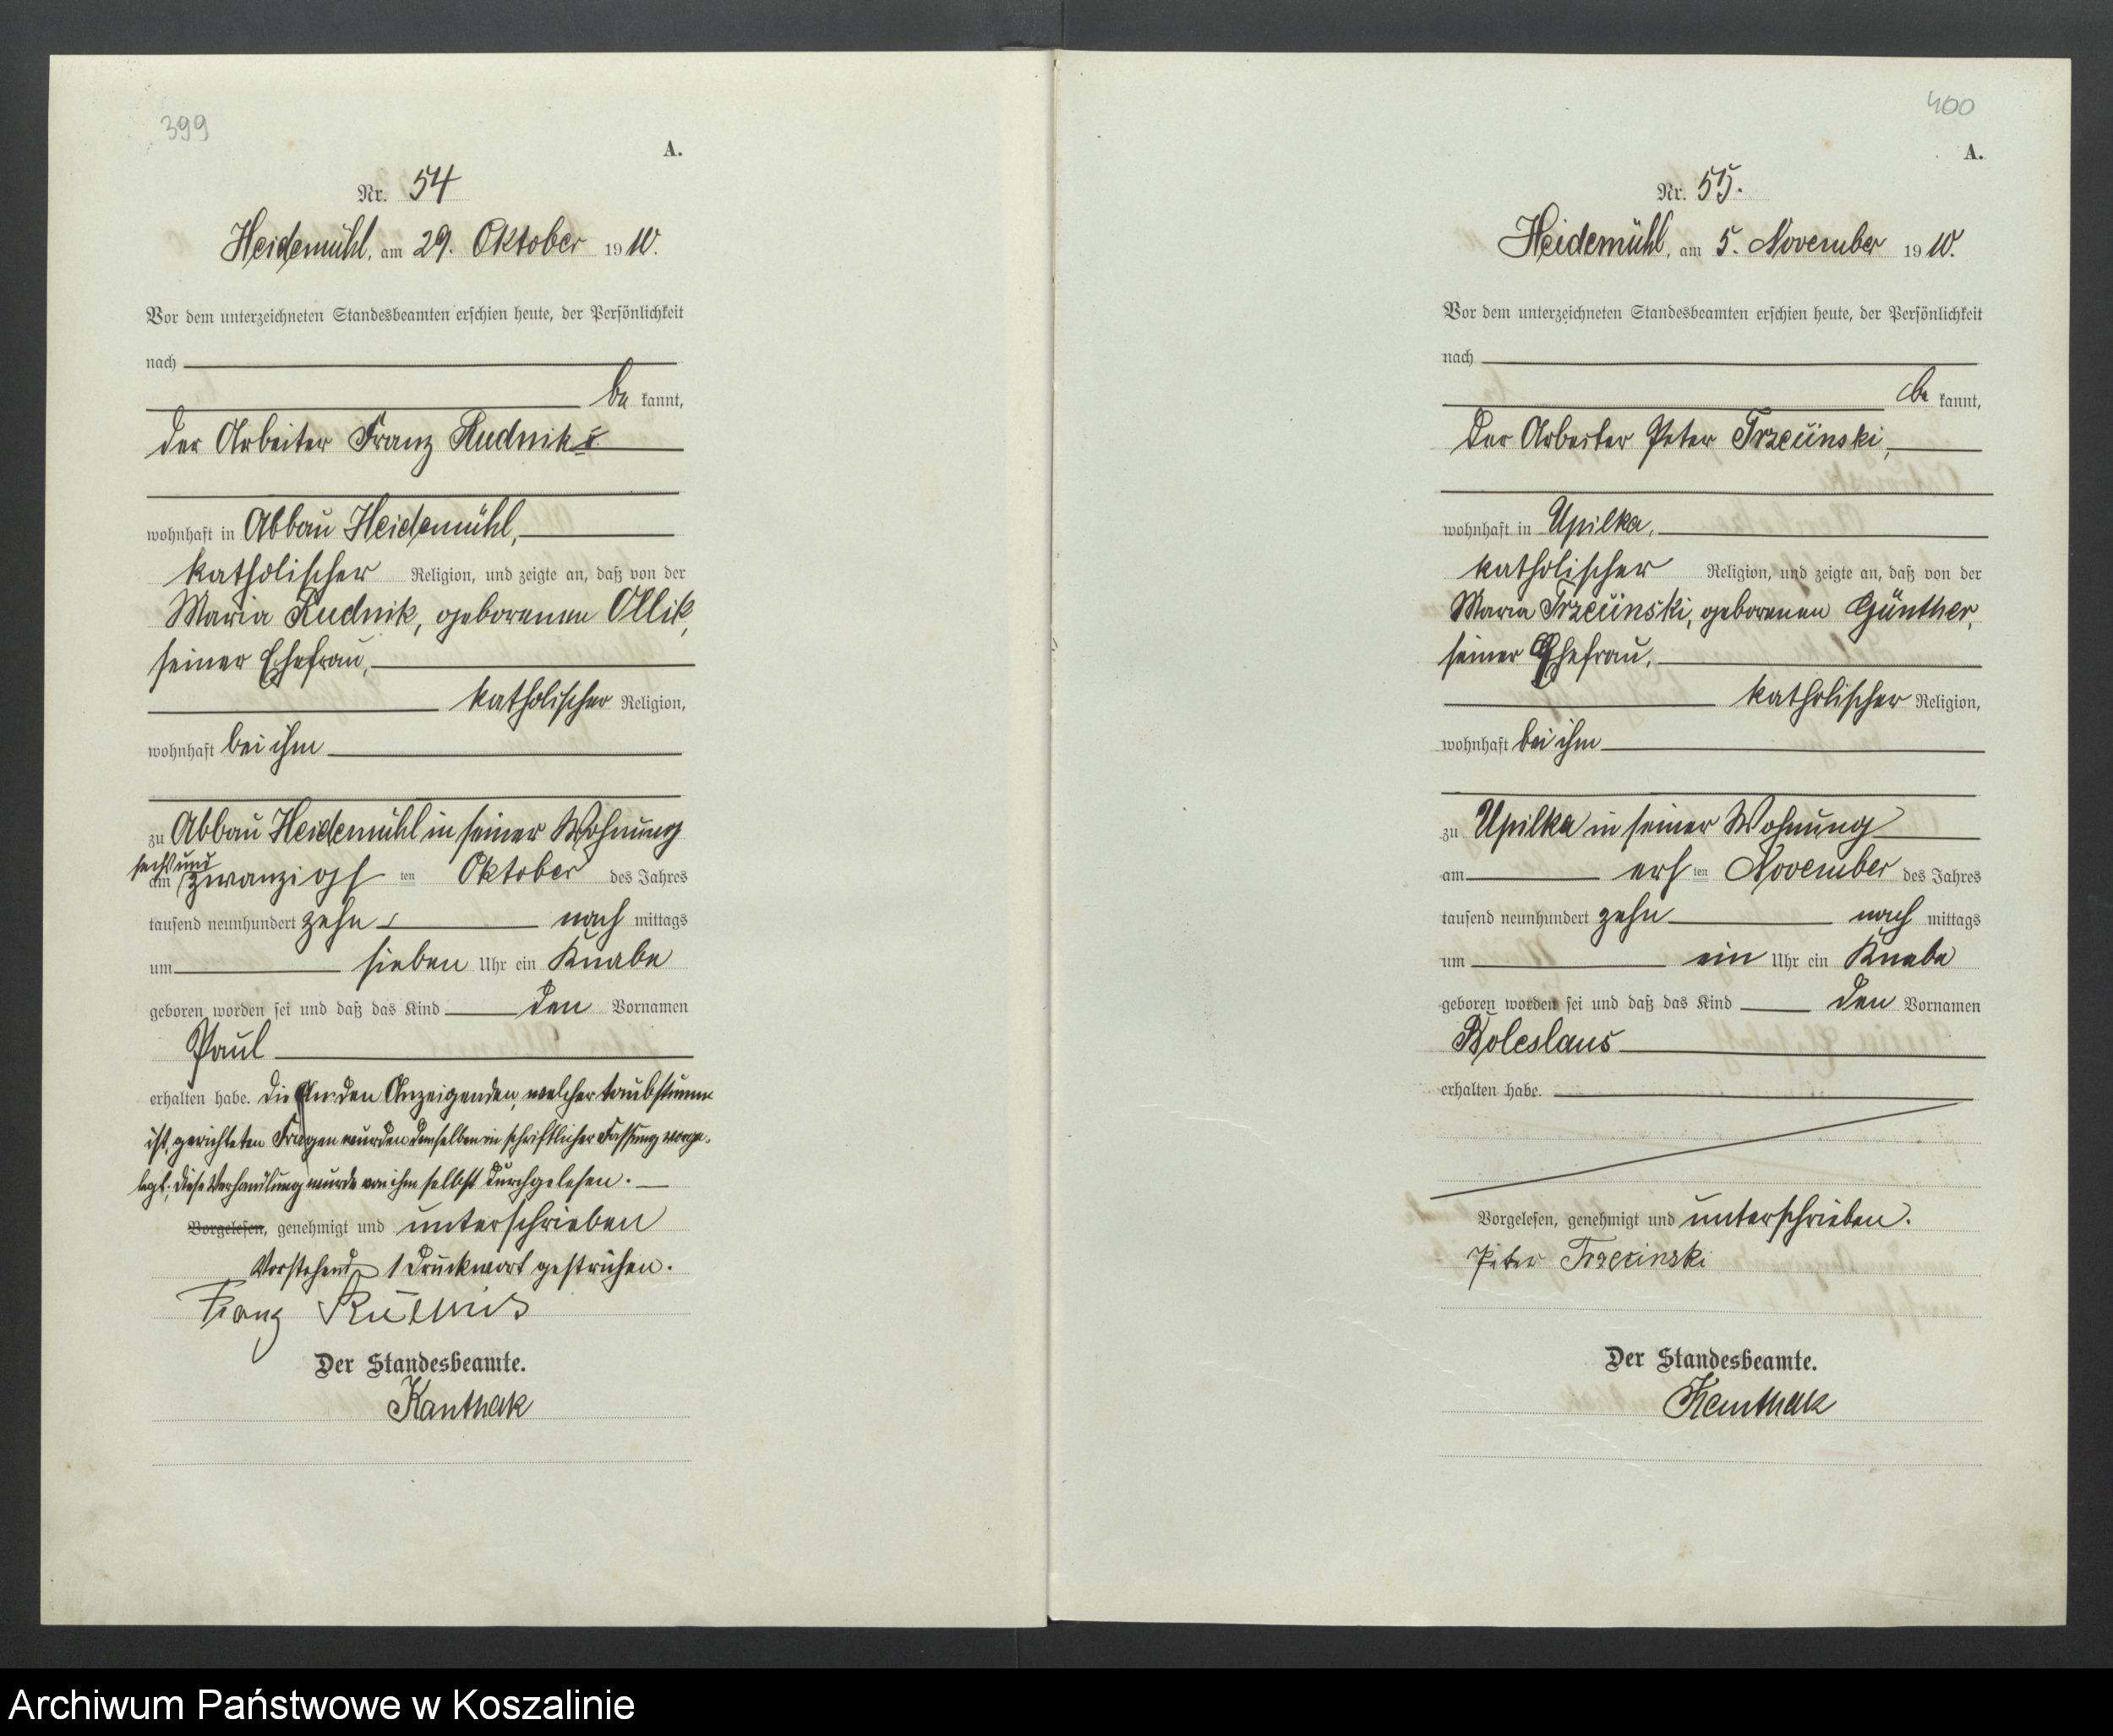 399
A.
Nr. 54
Heidemühl, am 29. Oktober 1910.
Vor dem unterzeichneten Standesbeamten erschien heute, der Persönlichkeit
nach
be kannt,
der Arbeiter Franz Rudnik
wohnhaft in Abbau Heidemühl,
katholischer Religion, und zeigte an, daß von der
Maria Rudnik, geborenen Ollik,
seiner Ehefrau,
katholischer Religion,
wohnhaft bei ihm
zu Abbau Heidemühl in seiner Wohnung
sechsund
am zwanzigs ten Oktober des Jahres
tausend neunhundert zehn nach mittags
um sieben Uhr ein Knabe
geboren worden sei und daß das Kind den Vornamen
Paul
erhalten habe. Die an den Anzeigenden, welcher taubstumm
ist, gerichteten Fragen wurden demselben in schriftlicher Fassung vorge-
legt; diese Verhandlung wurde von ihm selbst durchgelesen.
Vorgelesen, genehmigt und unterschrieben
Vorstehend 1 Druckwort gestrichen.
Franz
Der Standesbeamte.
Kanthak
400
A.
Nr. 55.
Heidemühl, am 5. November 1910.
Vor dem unterzeichneten Standesbeamten erschien heute, der Persönlichkeit
nach
be kannt,
der Arbeiter Peter Trzecinski,
wohnhaft in Upilka,
katholischer Religion, und zeigte an, daß von der
Maria Trzecinski, geborenen Günther,
seiner Ehefrau,
katholischer Religion,
wohnhaft bei ihm
zu Upilka in seiner Wohnung
am ers ten November des Jahres
tausend neunhundert zehn nach mittags
um ein Uhr ein Knabe
geboren worden sei und daß das Kind den Vornamen
Boleslaus
erhalten habe.
Vorgelesen, genehmigt und unterschrieben.
Peter Trzecinski
Der Standesbeamte.
Kanthak
Archiwum Państwowe w Koszalinie